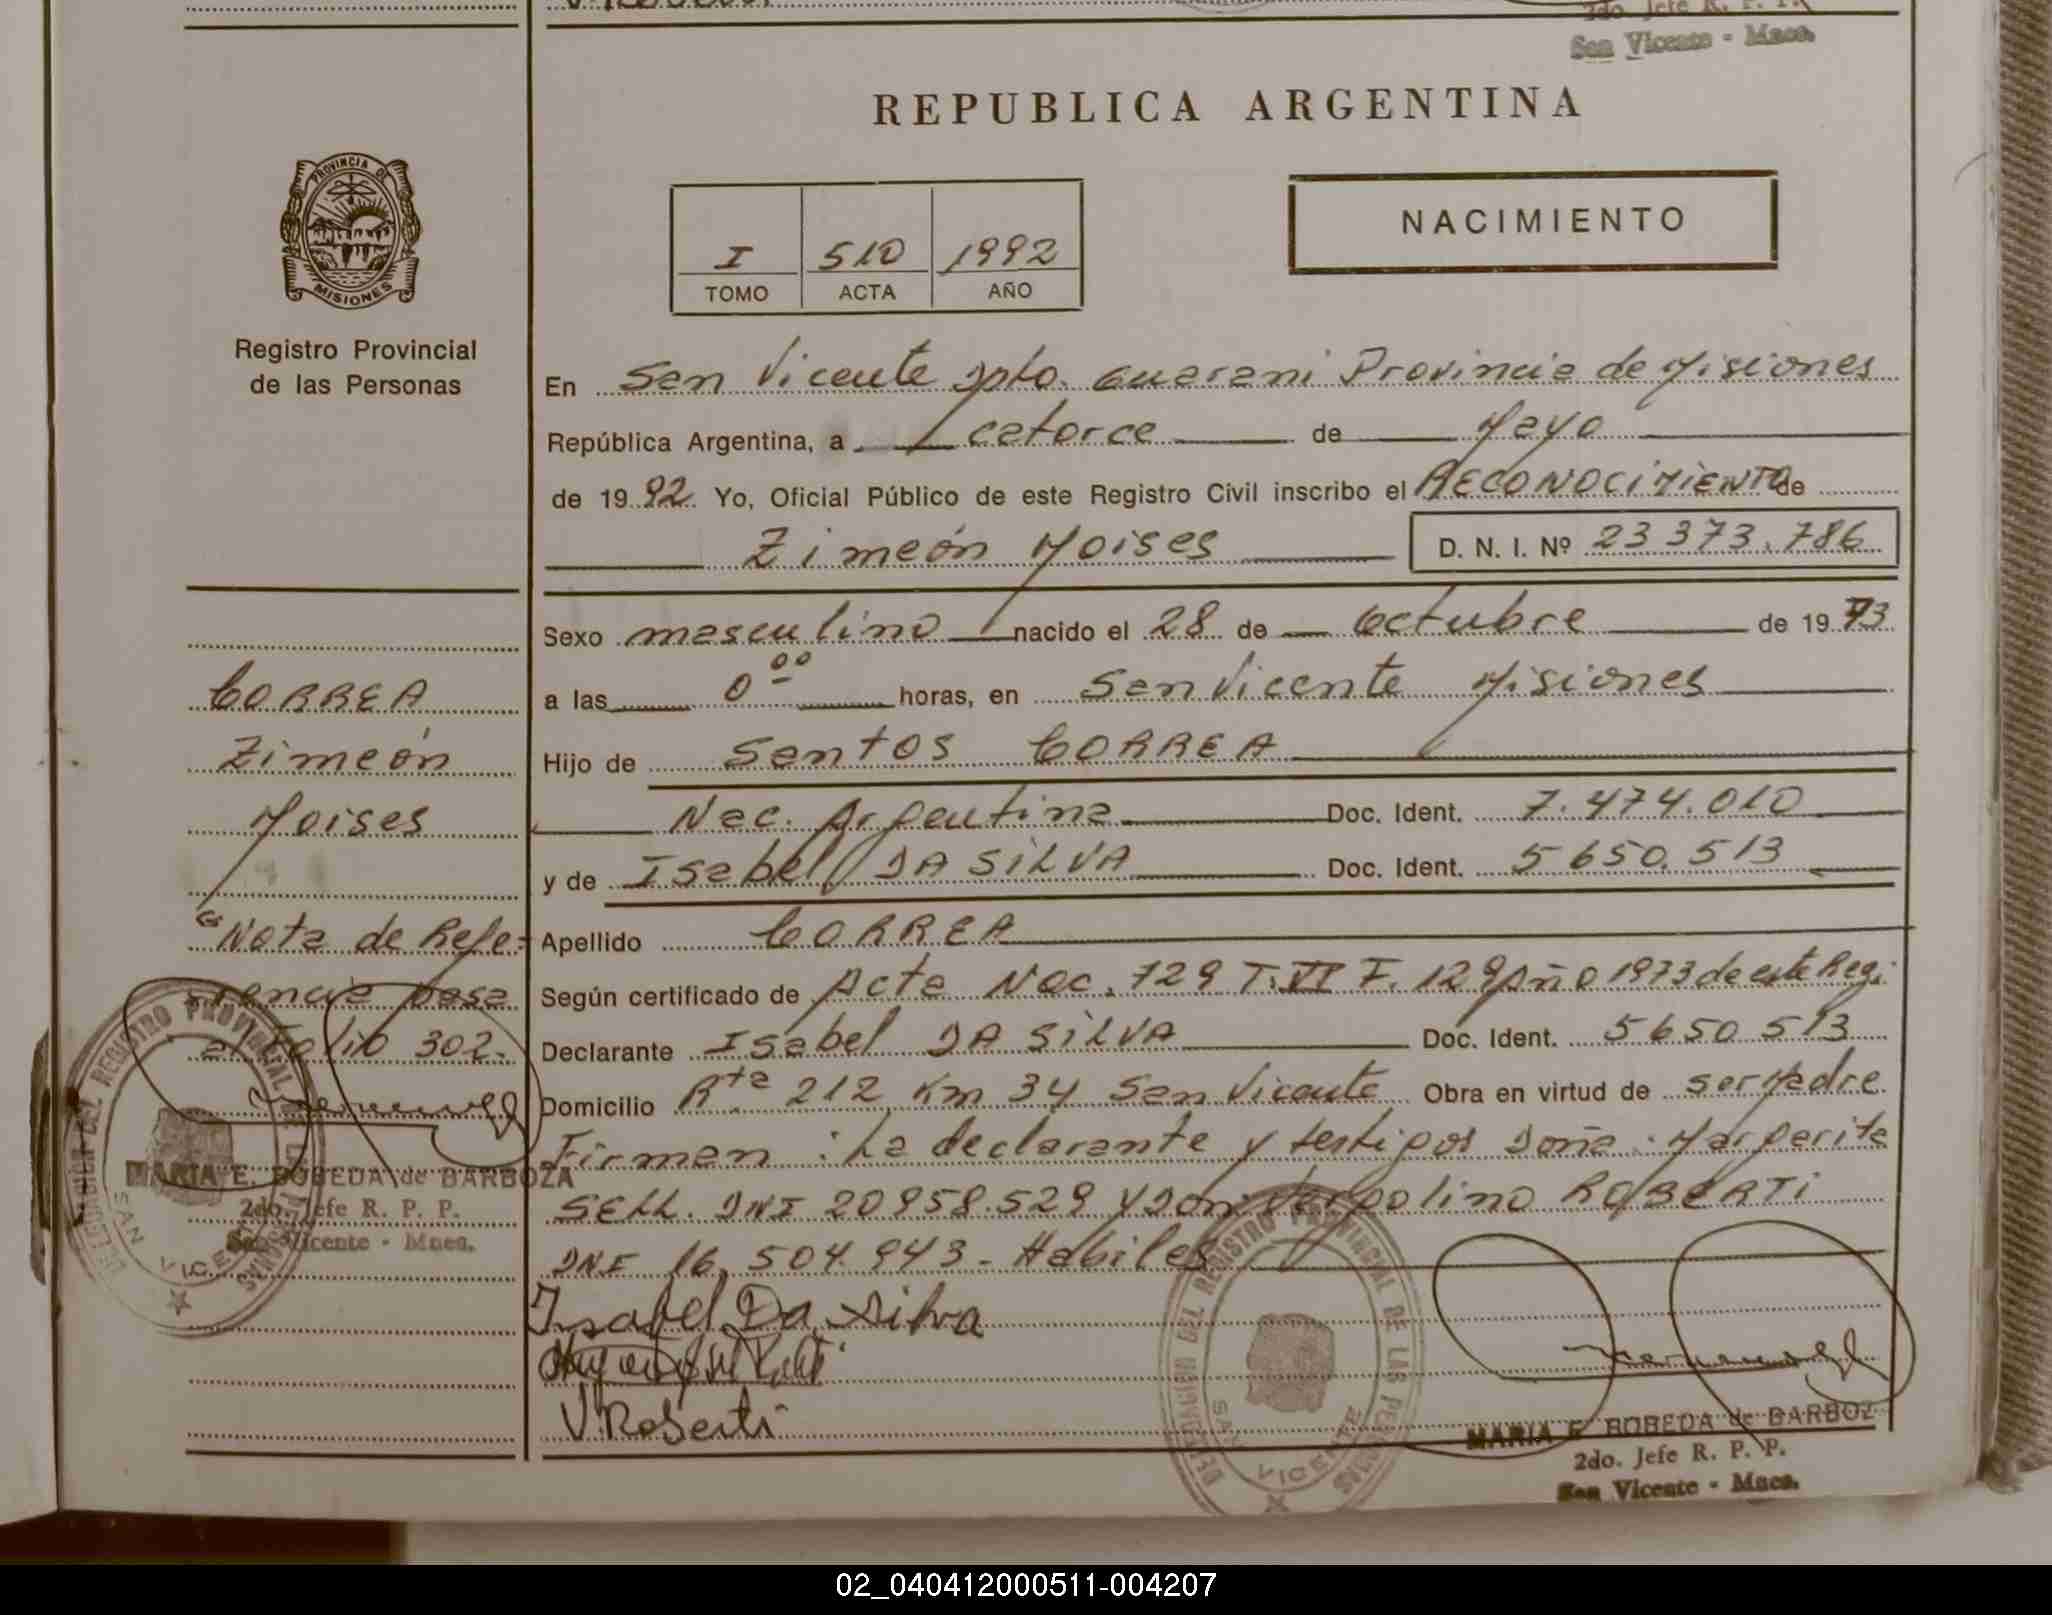 2do. Jefe R. P. P.
San Vicente - Mnes.
REPUBLICA ARGENTINA
PROVINCIA DE
MISIONES
I 510 1992
TOMO ACTA AÑO
NACIMIENTO
Registro Provincial
de las Personas
En San Vicente Dpto. Guarani Provincia de Misiones
República Argentina, a catorce de Mayo
de 1992 Yo, Oficial Público de este Registro Civil inscribo el RECONOCIMIENTO de
Zimeón Moises D. N. I. Nº 23 373.786
Sexo masculino nacido el 28 de Octubre de 1973
a las 0 00 horas, en San Vicente Misiones
Hijo de Santos CORREA
Nac. Argentina Doc. Ident. 7.474.010
y de Isabel DA SILVA Doc. Ident. 5 650.513
Apellido CORREA
Según certificado de Acta Nac. 729 T. VI F. 129 Año 1973 de este Reg.
Declarante Isabel DA SILVA Doc. Ident. 5 650 513
Domicilio Rta 212 Km 34 San Vicente Obra en virtud de ser Madre
Firman : La declarante y testigos Doña : Margarita
SELL. DNI 20958.529 y Don: Vergolino ROBERTI
DNI 16.504.943 - Habiles
Isabel Da Silva
V. Roberti
CORREA
Zimeón
Moises
"Nota de Refe-
rencia pasa
al Folio 302.
MARIA E. BOBEDA de BARBOZA
2do. Jefe R. P. P.
San Vicente - Mnes.
DELEGACION DEL REGISTRO PROVINCIAL DE LAS PERSONAS
SAN VICENTE
DELEGACION DEL REGISTRO PROVINCIAL DE LAS PERSONAS
SAN VICENTE
MARIA E. BOBEDA de BARBOZ
2do. Jefe R. P. P.
San Vicente - Mnes.
02_040412000511-004207